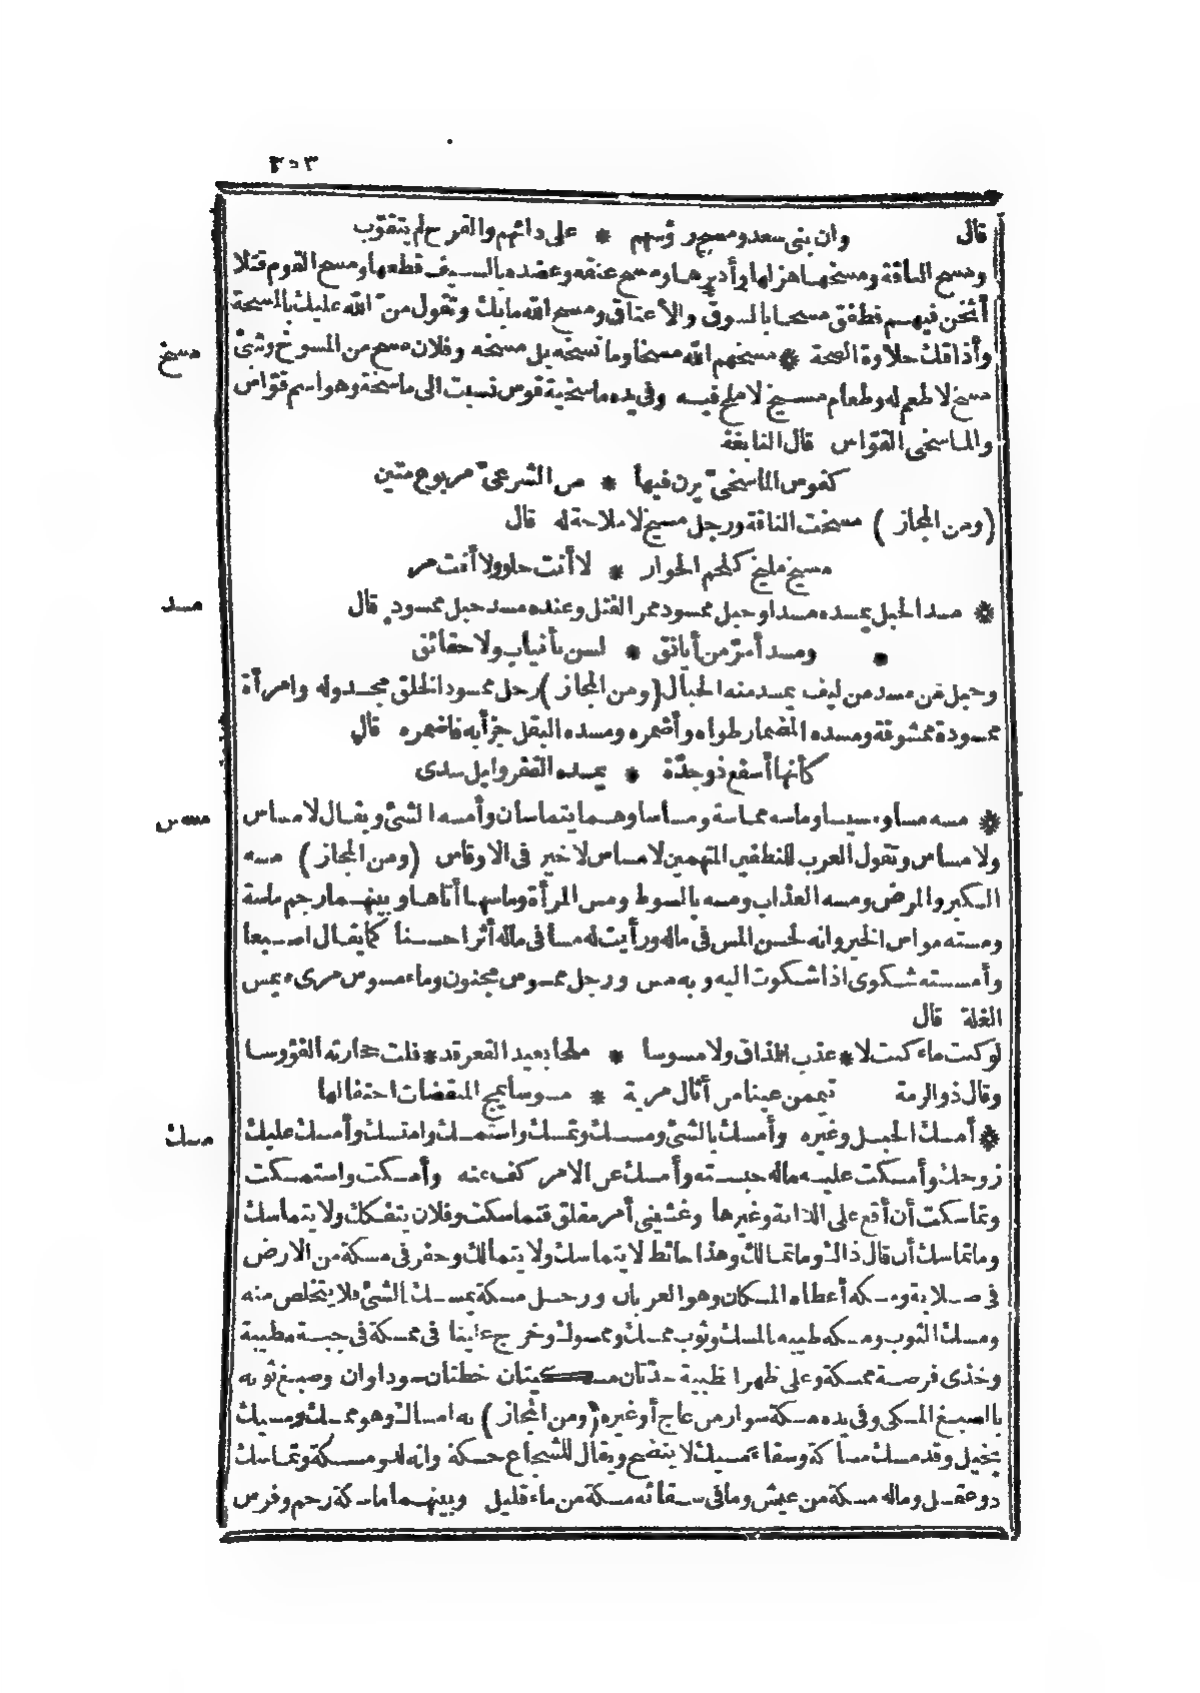 ٣٠٣
قال وان بني سعد ومسح رؤسهم * على دائهم والقرح لم يتقوّب
ومسح الناقة ومسخها هزلها وأدبرها ومسح عنقه وعضده بالسيف قطعها ومسح القوم قتلا
أثخن فيهم فطفق مسحا بالسوق والأعناق ومسح الله مابك وتقول منّ الله عليك بالمسحة
وأذاقك حلاوة الصحة * مسخهم الله مسخا وما نسخه بل مسخه وفلان مسخ من المسوخ وشئ
مسخ
مسيخ لا طعم له وطعام مسيخ لا ملح فيه وفي يده ماسخية قوس نسبت الى ماسخة وهو اسم قوّاس
والماسخى القوّاس قال النابغة
كقوس الماسخىّ يرن فيها * من الشرعىّ مربوع متين
(ومن المجاز) مسخت الناقة ورجل مسيخ لا ملاحة له قال
مسيخ مليخ كلحم الحوار * لا أنت حلو ولا أنت مر
* مسد الحبل يمسده مسدا وحبل ممسود ممر الفتل وعنده مسد حبل ممسود قال
مسد
ومسد أمرّ من أيانق * لسن بأنياب ولا حقائق
وحبل من مسد من ليف يمسد منه الحبال (ومن المجاز) رجل ممسود الخلق مجدوله وامرأة
ممسودة ممشوقة ومسده المضمار طواه وأضمره ومسده البقل جزأ به فاضمره قال
كأنها أسفع ذو جدّة * يمسده القفر وليل سدى
* مسه مسا ومسيسا وماسه مماسة ومساسا وهما يتماسان وأمسه الشئ ويقال لا مساس
مسس
ولا مساس وتقول العرب للنطفين المتهمين لا مساس لا خير في الاوقاس (ومن المجاز) مسه
الكبر والمرض ومسه العذاب ومسه بالسوط ومس المرأة وماسها أتاها وبينهما رحم ماسة
ومسته مواس الخير وانه لحسن المس في ماله ورأيت له مسا في ماله أثرا حسنا كما يقال اصبعا
وأمسسته شكوى اذا شكوت اليه وبه مس ورجل ممسوس مجنون وماء مسوس مرىء يمس
الغلة قال
لو كنت ماء كنت لا * عذب المذاق ولا مسوسا * ملحا بعيد القعر قد * فلت حجارته الفؤوسا
وقال ذو الرمة تيممن عينا من أثال مرية * مسوسا يمج المنقضات احتفالها
* أمسك الحبل وغيره وأمسك بالشئ ومسك وتمسك واستمسك وامتسك وأمسك عليك
مسك
زوجك وأمسكت عليه ماله حبسته وأمسك عن الامر كف عنه وأمسكت واستمسكت
وتماسكت أن أقع على الدابة وغيرها وغشينى أمر مقلق فتماسكت وفلان يتفكك ولا يتماسك
وما تماسك أن قال ذالك وما تمالك وهذا حائط لا يتماسك ولا يتمالك وحفر في مسكة من الارض
في صلابة ومسكه أعطاه المسكان وهو العربان ورجل مسكة يمسك الشئ فلا يتخلص منه
ومسك الثوب ومسكه طيبه بالمسك وثوب ممسك وممسوك وخرج علينا في ممسكة في جبة مطيبة
وخذى فرصة ممسكة وعلى ظهر الظبية جدتان مسكيتان خطتان سوداوان وصبغ ثوبه
بالصبغ المسكى وفي يده مسكة سوار من عاج أو غيره (ومن المجاز) به امساك وهو ممسك ومسيك
بخيل وقد مسك مساكة وسقاء مسيك لا ينضح ويقال للشجاع حسكة وانه لذو مسكة وتماسك
ذو عقل وماله مسكة من عيش وما في سقائه مسكة من ماء قليل وبينهما ماسكة رحم وفرس